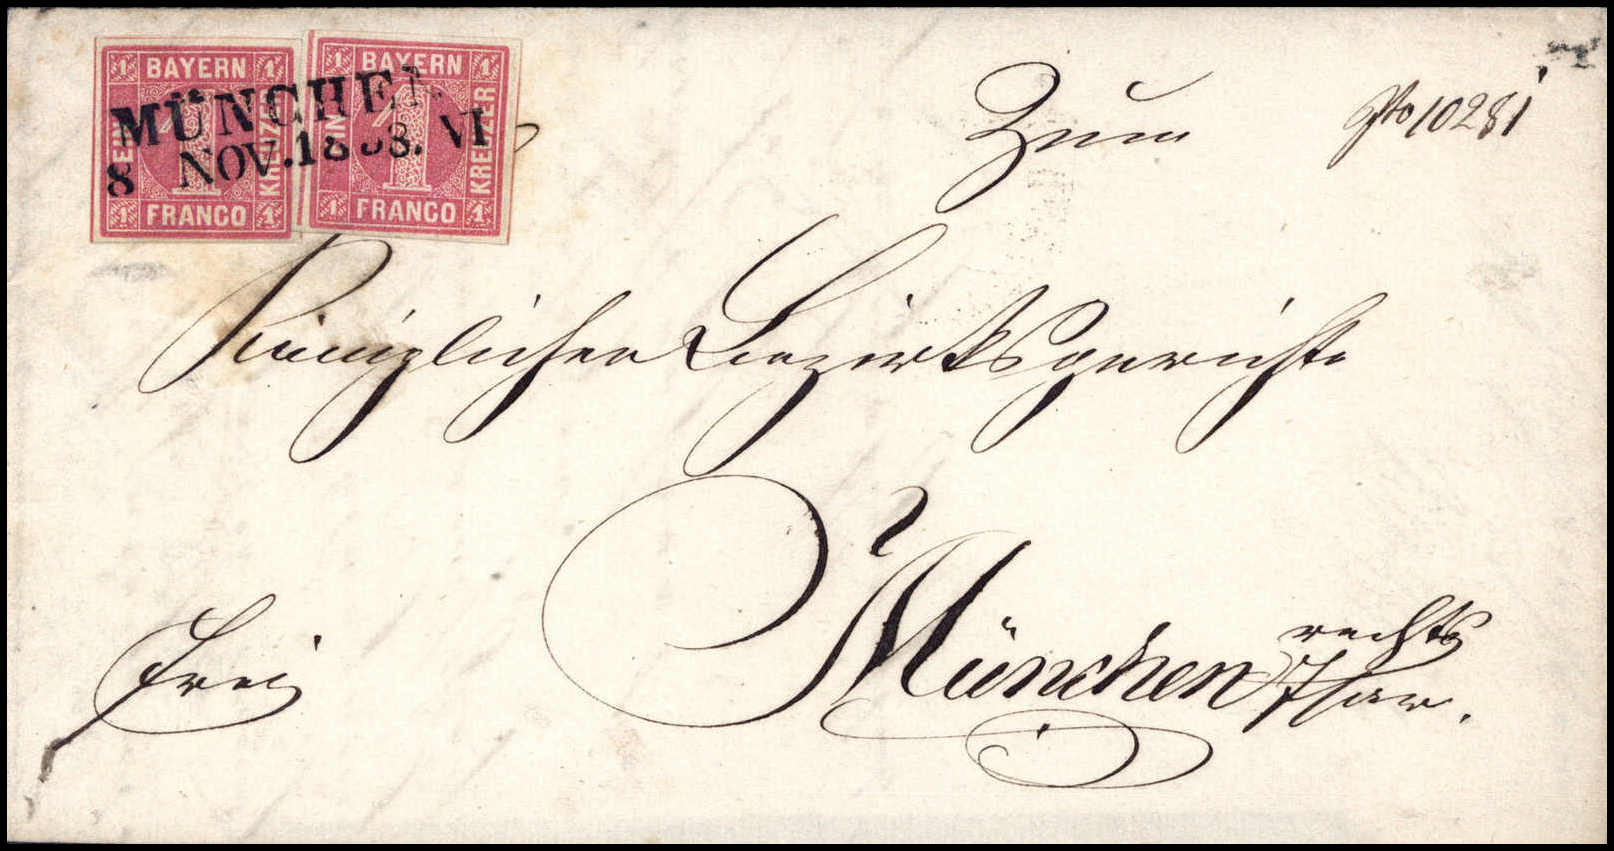 1 BAYERN 1
EIN
KREUZER
1
1 FRANCO 1
1 BAYERN 1
EIN
KREUZER
1
1 FRANCO 1
MÜNCHEN
8 NOV. 18 8. VI
Zum
10281
Königlichen Bezirksgerichte
München
rechts
Isar.
frei